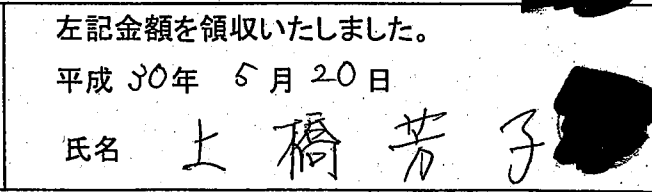 左記金額を領収いたしました。
平成 30年 5月 20日
氏名 上橋 芳子